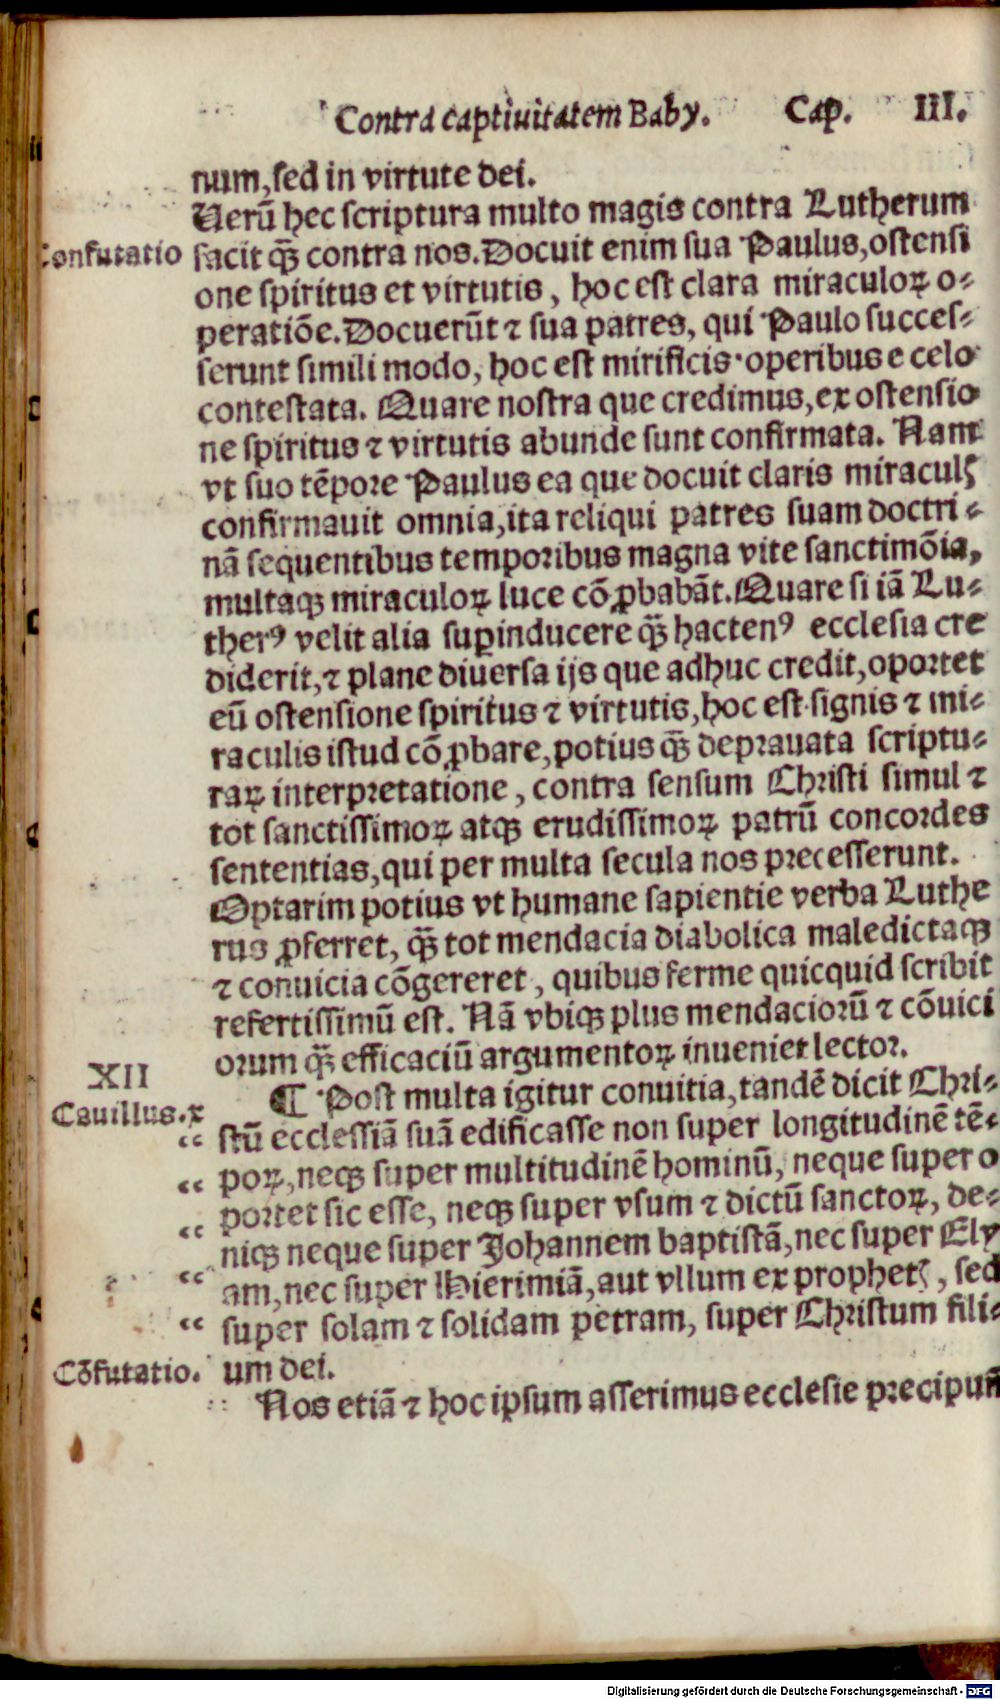 Contra captiuitatem Baby. Cap. III.
num, sed in virtute dei.
Uerũ hec scriptura multo magis contra Lutherum
Confutatio
facit q̃ꝫ contra nos. Docuit enim sua Paulus, ostensi
one spiritus et virtutis, hoc est clara miraculoꝝ o⸗
peratiõe. Docuerũt ⁊ sua patres, qui Paulo succes⸗
serunt simili modo, hoc est mirificis operibus e celo
contestata. Quare nostra que credimus, ex ostensio
ne spiritus ⁊ virtutis abunde sunt confirmata. Nam
vt suo tẽpore Paulus ea que docuit claris miraculꝭ
confirmauit omnia, ita reliqui patres suam doctri⸗
nã sequentibus temporibus magna vite sanctimõia,
multaqꝫ miraculoꝝ luce cõꝓbabãt. Quare si iã Lu⸗
therꝰ velit alia suꝑinducere q̃ꝫ hactenꝰ ecclesia cre
diderit, ⁊ plane diuersa ijs que adhuc credit, oportet
eũ ostensione spiritus ⁊ virtutis, hoc est signis ⁊ mi⸗
raculis istud cõꝓbare, potius q̃ꝫ deprauata scriptu⸗
raꝝ interpretatione, contra sensum Christi simul ⁊
tot sanctissimoꝝ atqꝫ erudissimoꝝ patrũ concordes
sententias, qui per multa secula nos precesserunt.
Optarim potius vt humane sapientie verba Luthe
rus ꝓferret, q̃ꝫ tot mendacia diabolica maledictaqꝫ
⁊ conuicia cõgereret, quibus ferme quicquid scribit
refertissimũ est. Nã vbiqꝫ plus mendaciorũ ⁊ cõuici
orum q̃ꝫ efficaciũ argumentoꝝ inueniet lector.
XII
Cauillus.x
¶ Post multa igitur conuitia, tandẽ dicit Chri⸗
“ stũ ecclessiã suã edificasse non super longitudinẽ tẽ⸗
“ poꝝ, neqꝫ super multitudinẽ hominũ, neque super o
“ portet sic esse, neqꝫ super vsum ⁊ dictũ sanctoꝝ, de⸗
niqꝫ neque super Johannem baptistã, nec super Ely
“ am, nec super Hierimiã, aut vllum ex prophetꝭ, sed
“ super solam ⁊ solidam petram, super Christum fili⸗
Cõfutatio. um dei.
Nos etiã ⁊ hoc ipsum asserimus ecclesie precipuũ
Digitalisierung gefördert durch die Deutsche Forschungsgemeinschaft - DFG